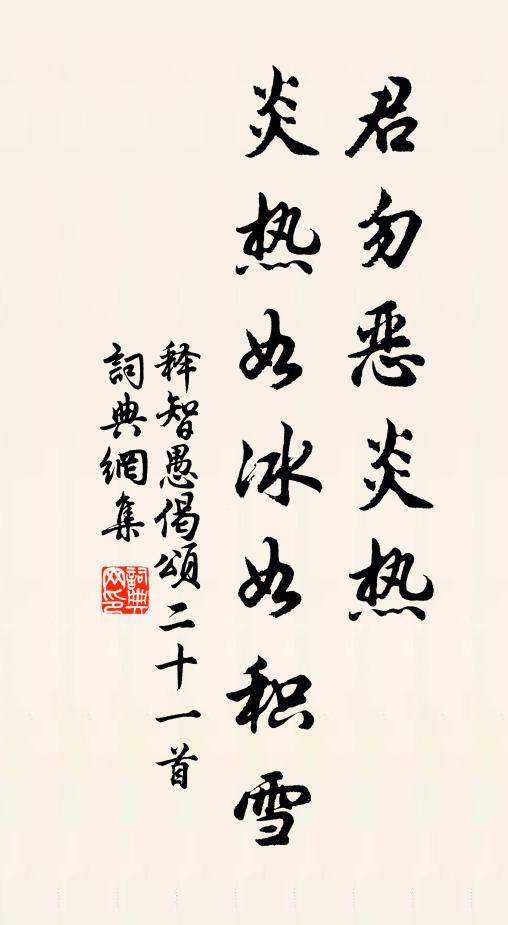 君勿恶炎热
炎热如冰如积雪
释智愚偈頌二十一首
詞典網集
詞典网印